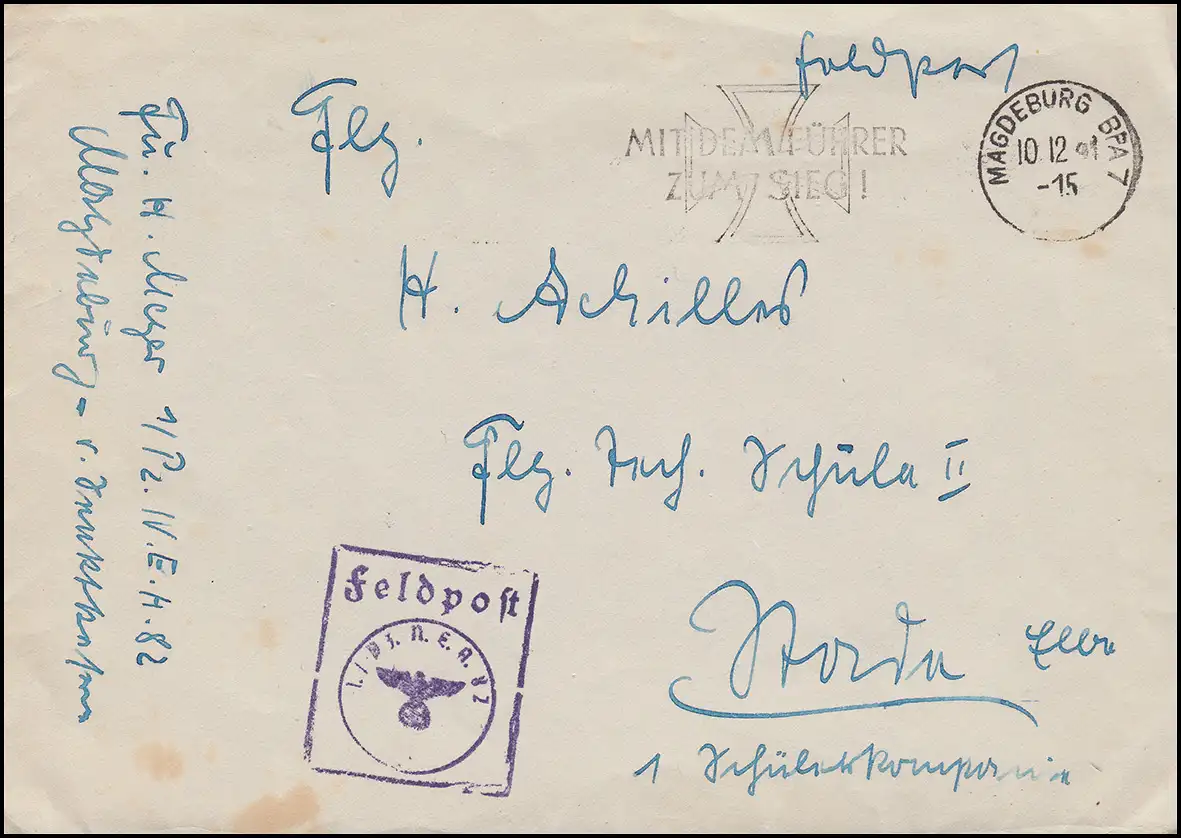 Feldpost
MIT DEM FÜHRER
ZUM SIEG!
MAGDEBURG BPA 7
10.12.41
-15
Flg.
H. Achilles
Flg. Tech. Schule II
Stade Elbe
1 Schülerkompanie
Feldpost
1./Pz. N. E. A. 82
H. Meyer 1/Pz. N. E. A. 82
Magdeburg -